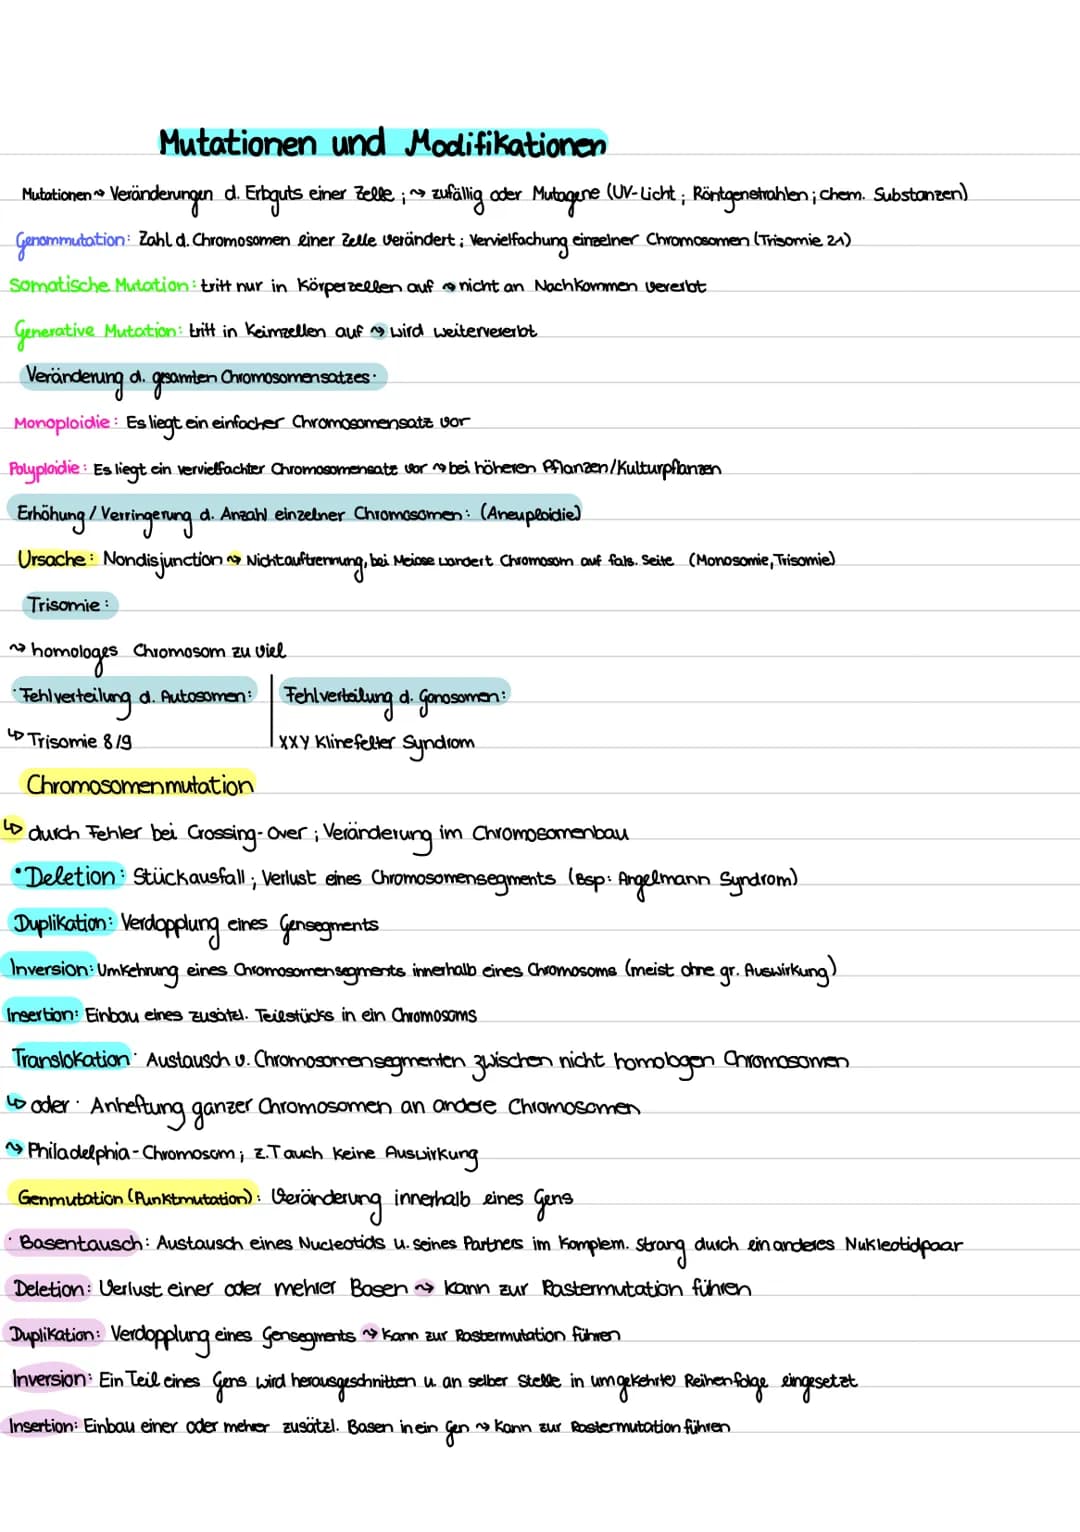 Mutationen und Modifikationen
Mutationen ⇝ Veränderungen d. Erbguts einer Zelle ; ⇝ zufällig oder Mutagene (UV-Licht ; Röntgenstrahlen ; chem. Substanzen)
Genommutation: Zahl d. Chromosomen einer Zelle verändert ; Vervielfachung einzelner Chromosomen (Trisomie 21)
Somatische Mutation: tritt nur in Körperzellen auf ⇝ nicht an Nachkommen vererbt
Generative Mutation: tritt in Keimzellen auf ⇝ wird weitervererbt
Veränderung d. gesamten Chromosomensatzes:
Monoploidie: Es liegt ein einfacher Chromosomensatz vor
Polyploidie: Es liegt ein vervielfachter Chromosomensatz vor ⇝ bei höheren Pflanzen/Kulturpflanzen
Erhöhung / Verringerung d. Anzahl einzelner Chromosomen: (Aneuploidie)
Ursache: Nondisjunction ⇝ Nichtauftrennung, bei Meiose wandert Chromosom auf fals. Seite (Monosomie, Trisomie)
Trisomie:
⇝ homologes Chromosom zu viel
· Fehlverteilung d. Autosomen: | Fehlverteilung d. Gonosomen:
↳ Trisomie 8/9 | XXY Klinefelter Syndrom
Chromosomenmutation
↳ durch Fehler bei Crossing-Over ; Veränderung im Chromosomenbau
· Deletion: Stückausfall ; Verlust eines Chromosomensegments (Bsp: Angelmann Syndrom)
Duplikation: Verdopplung eines Gensegments
Inversion: Umkehrung eines Chromosomensegments innerhalb eines Chromosoms (meist ohne gr. Auswirkung)
Insertion: Einbau eines zusätzl. Teilstücks in ein Chromosoms
Translokation: Austausch v. Chromosomensegmenten zwischen nicht homologen Chromosomen
↳ oder: Anheftung ganzer Chromosomen an andere Chromosomen
⇝ Philadelphia-Chromosom ; z.T auch keine Auswirkung
Genmutation (Punktmutation): Veränderung innerhalb eines Gens
· Basentausch: Austausch eines Nucleotids u. seines Partners im Komplem. Strang durch ein anderes Nukleotidpaar
Deletion: Verlust einer oder mehrer Basen ⇝ kann zur Rastermutation führen
Duplikation: Verdopplung eines Gensegments ⇝ Kann zur Rastermutation führen
Inversion: Ein Teil eines Gens wird herausgeschnitten u an selber Stelle in umgekehrter Reihenfolge eingesetzt
Insertion: Einbau einer oder mehrer zusätzl. Basen in ein Gen ⇝ Kann zur Rastermutation führen